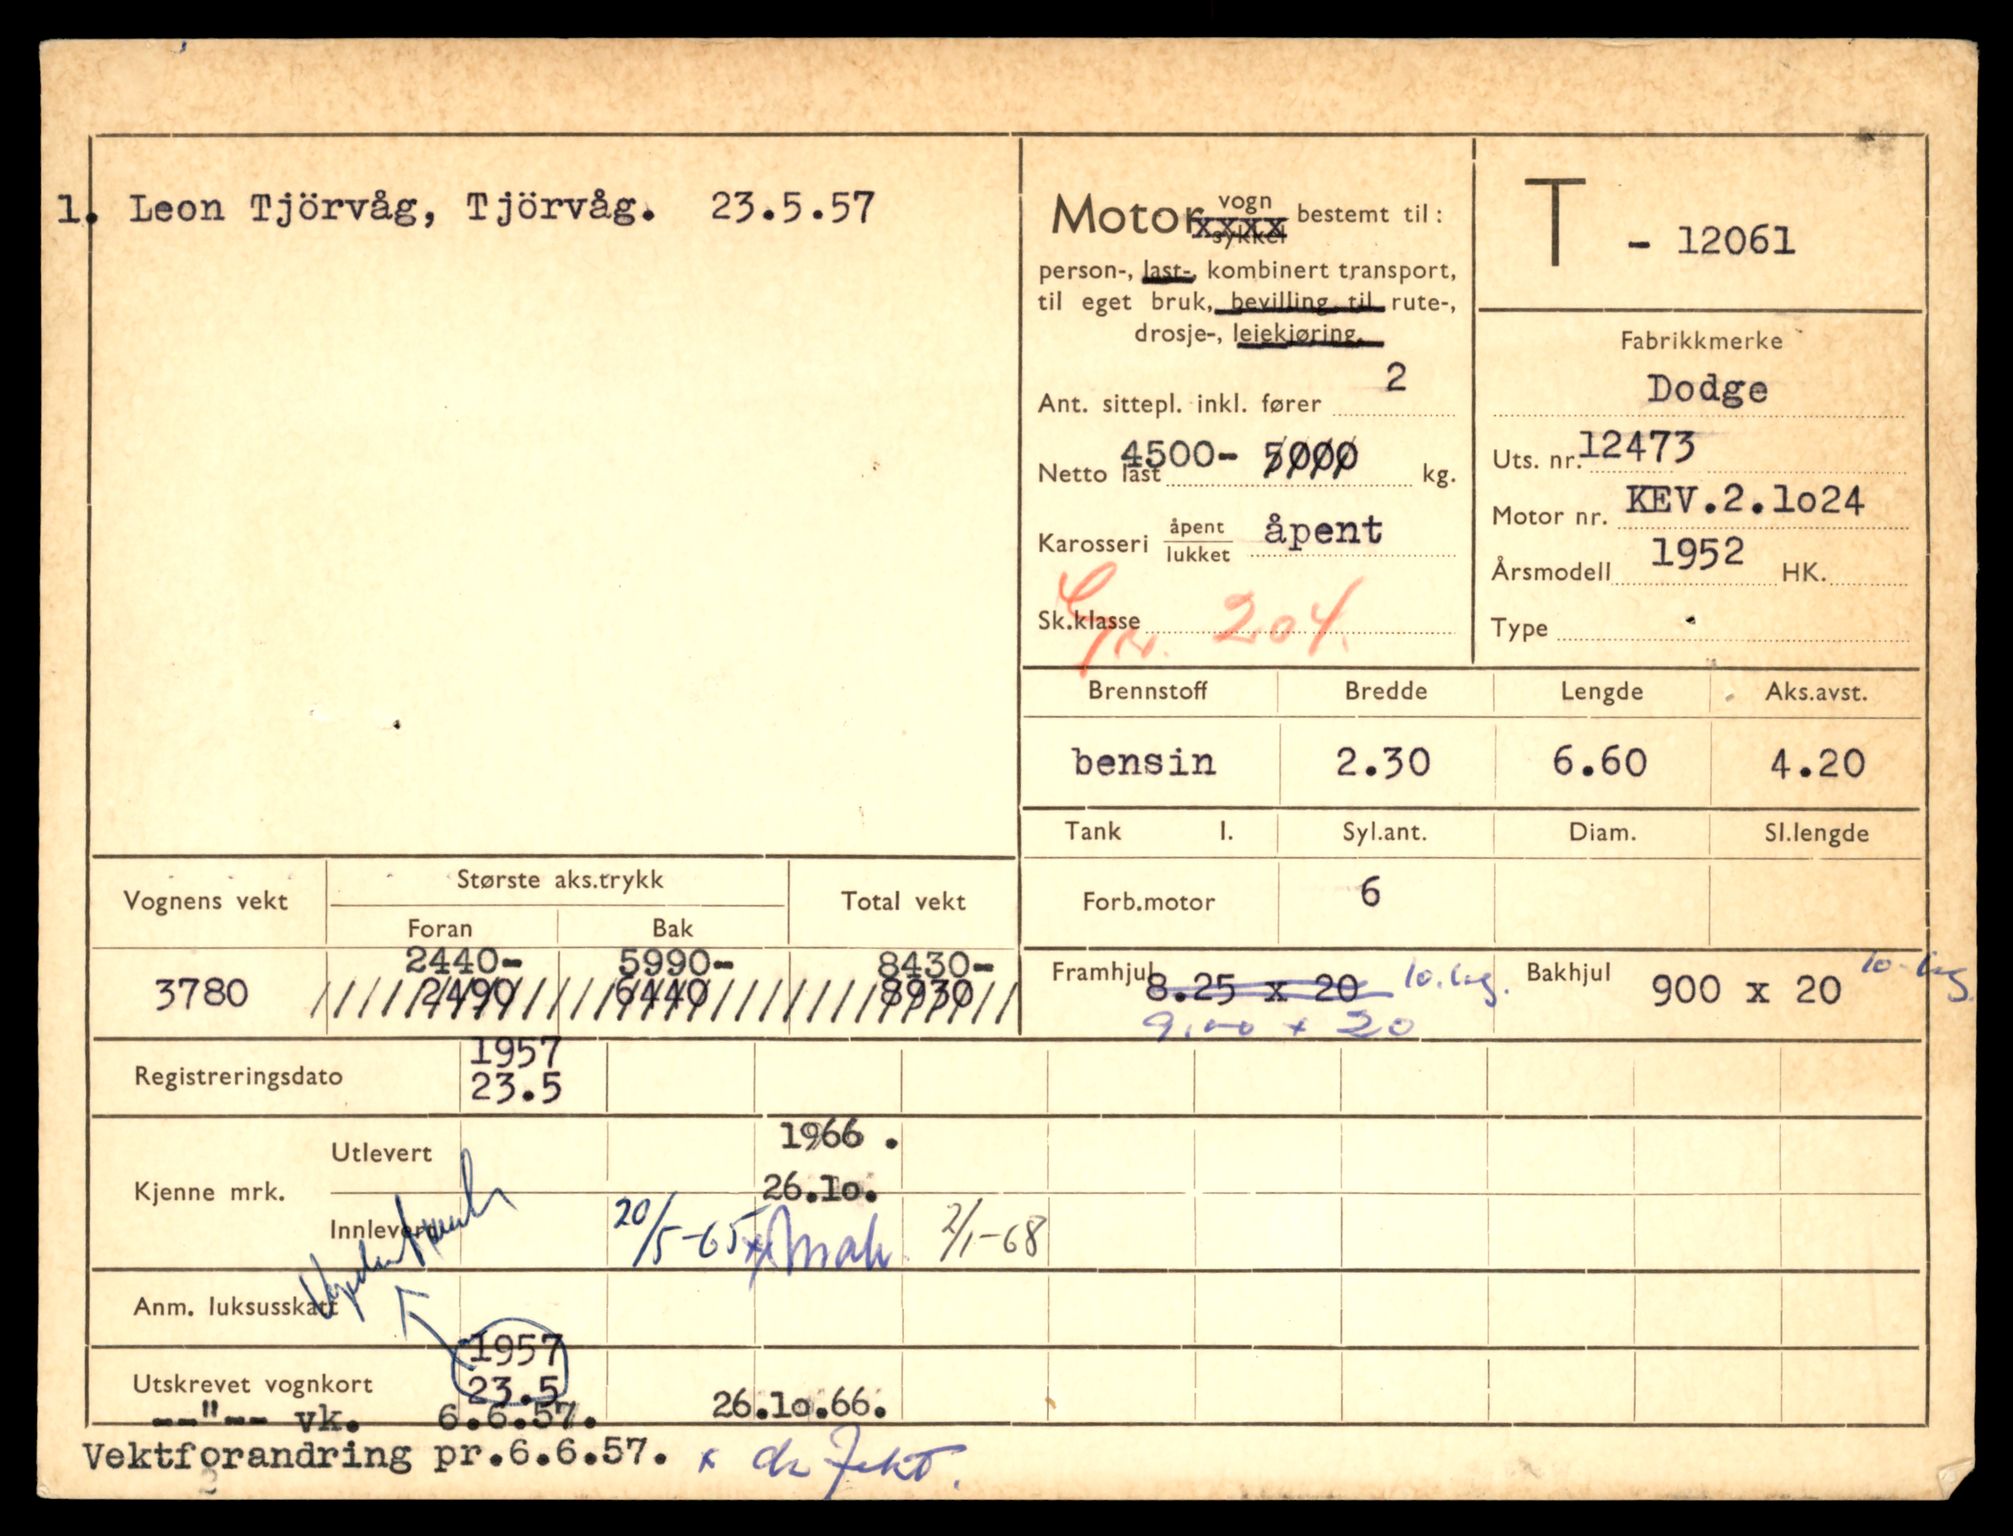 1. Leon Tjörvåg, Tjörvåg. 23.5.57
Motor vogn xxxx sykkel bestemt til:
person-, last-, kombinert transport,
til eget bruk, bevilling til rute-,
drosje-, leiekjøring.
Ant. sittepl. inkl. fører 2
Netto last 4500- 5000 kg.
Karosseri åpent lukket åpent
Sk.klasse Gr. 204.
T - 12061
Fabrikkmerke
Dodge
Uts. nr. 12473
Motor nr. KEV.2.1o24
Årsmodell 1952 HK.
Type
Brennstoff Bredde Lengde Aks.avst.
bensin 2.30 6.60 4.20
Tank l. Syl.ant. Diam. Sl.lengde
Forb.motor 6
Framhjul 8.25 x 20 10. lag. Bakhjul 900 x 20 10- lag
9.00 x 20
Vognens vekt Største aks.trykk Total vekt
Foran Bak
2440- 5990- 8430-
3780 2490 6440 8930
Registreringsdato 1957
23.5
Kjenne mrk. Utlevert 1966.
26.1o.
Innlevert 20/5-65 x 2/1-68
Anm. luksusskatt
Utskrevet vognkort 1957
23.5
--"-- vk. 6.6.57. 26.1o.66.
Vektforandring pr.6.6.57. x